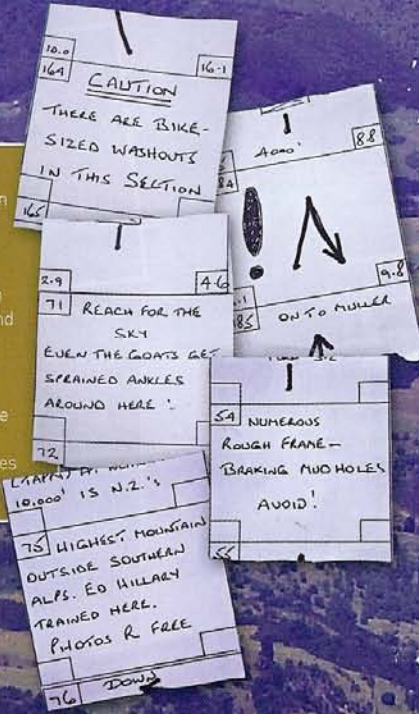 10.0
16.1
164
CAUTION
THERE ARE BIKE-
SIZED WASHOUTS
IN THIS SECTION
165
4000'
88
84
!
9.8
185
ONTO MULLER
2.9
4.6
71
REACH FOR THE
SKY
EVEN THE GOATS GET
SPRAINED ANKLES
AROUND HERE!
72
54
NUMEROUS
ROUGH FRAME-
BRAKING MUDHOLES
AVOID!
55
10,000' IS N.Z.'s
75
HIGHEST MOUNTAIN
OUTSIDE SOUTHERN
ALPS. ED HILLARY
TRAINED HERE.
PHOTOS R FREE
76
DOWN